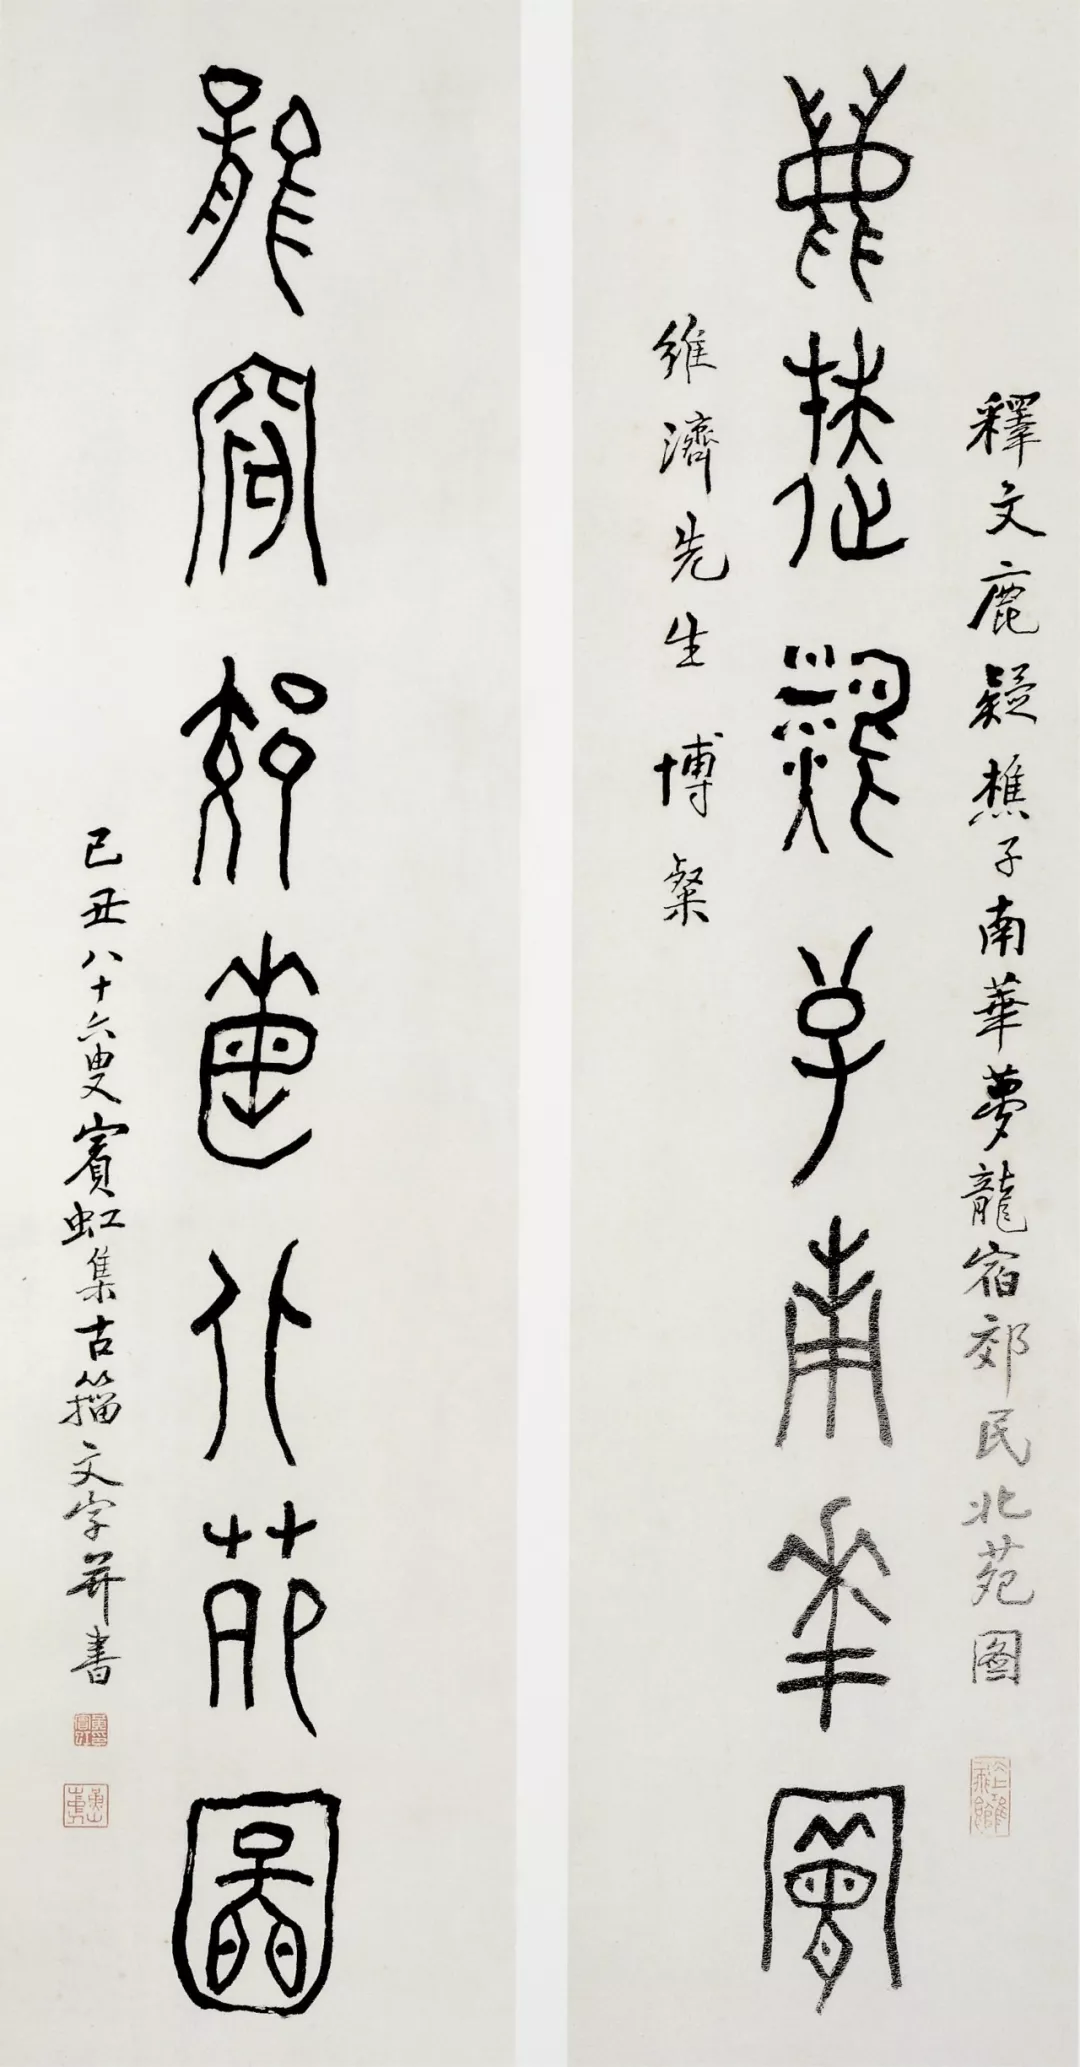 釋文鹿疑樵子南華夢龍宿郊民北苑圖
鹿疑樵子南華夢
維濟先生博粲
龍宿郊民北苑圖
己丑八十六叟賓虹集古籀文字并書